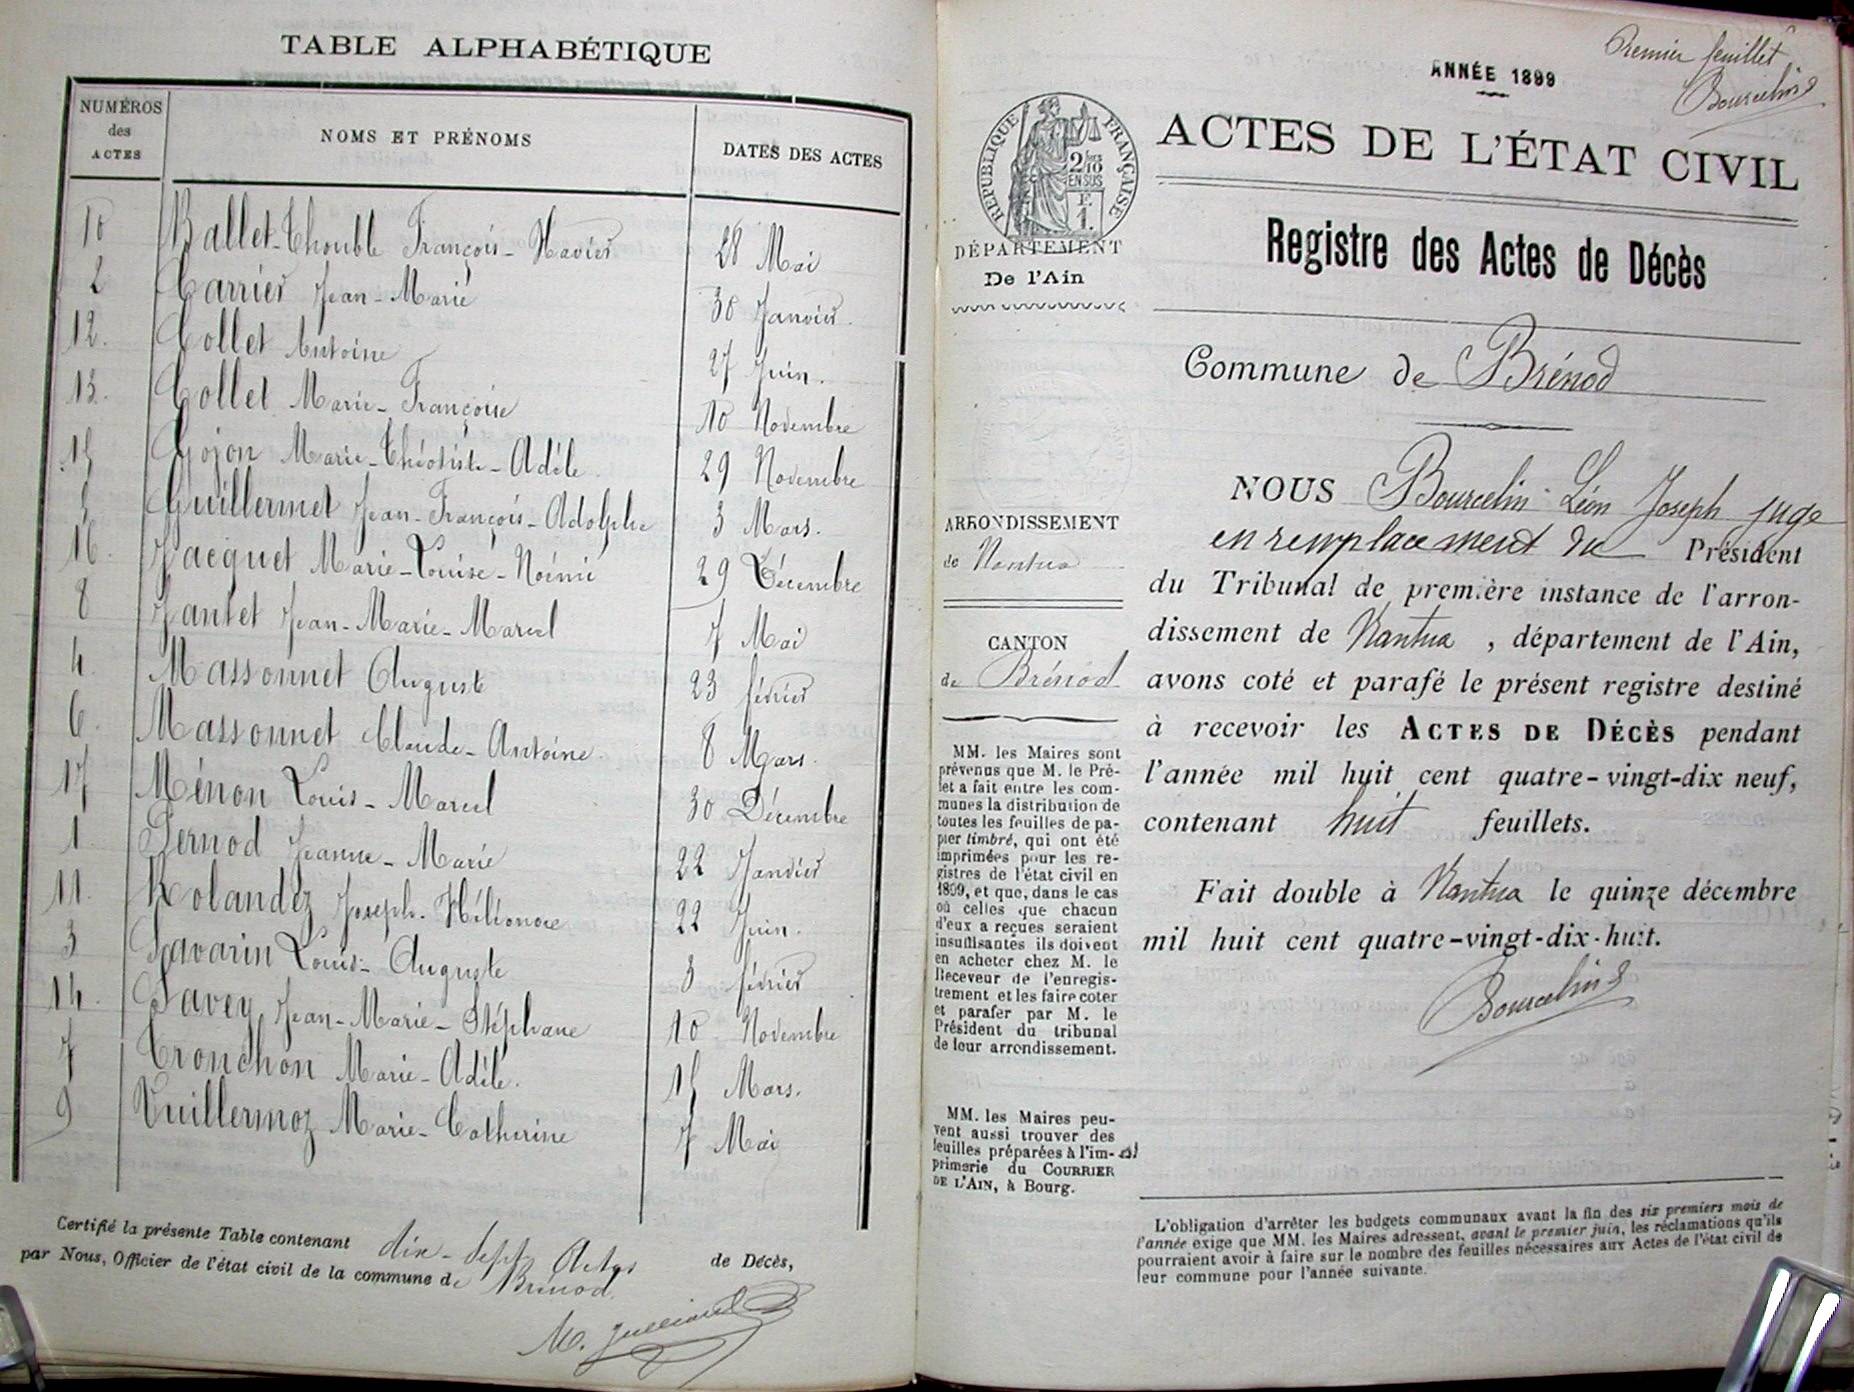 TABLE ALPHABÉTIQUE
NUMÉROS des ACTES NOMS ET PRÉNOMS DATES DES ACTES
10 Ballet-Thouble François-Xavier 28 Mai
2 Carrier Jean-Marie 30 Janvier.
12. Collet Antoine 27 Juin.
13. Collet Marie-Françoise 10 Novembre
15 Gojon Marie-Théotiste-Adèle. 29 Novembre
5 Guillermet Jean-François-Adolphe 3 Mars.
16. Jacquet Marie-Louise-Noémie 29 Décembre
8 Jantet Jean-Marie-Marcel 7 Mai
4. Massonnet Auguste 23 février
6. Massonnet Claude-Antoine. 8 Mars.
17 Ménon Louis-Marcel 30 Décembre
1 Pernod Jeanne-Marie 22 Janvier
11. Rolandez Joseph-Héléonore 22 Juin.
3 Savarin Louis-Auguste 3 février
14. Savey Jean-Marie-Stéphane 10 Novembre
7 Tronchon Marie-Adèle. 15 Mars.
9 Vuillermoz Marie-Catherine 7 Mai
Certifié la présente Table contenant dix-sept Actes de Décès,
par Nous, Officier de l'état civil de la commune de Brénod.
Premier feuillet
Bourcelin
ANNÉE 1899
RÉPUBLIQUE FRANÇAISE
2/10
EN SUS
F.
1.
ACTES DE L'ÉTAT CIVIL
DÉPARTEMENT
De l'Ain
Registre des Actes de Décès
Commune de Brénod
ARRONDISSEMENT
de Nantua
CANTON
de Brénod
MM. les Maires sont
prévenus que M. le Pré-
fet a fait entre les com-
munes la distribution de
toutes les feuilles de pa-
pier timbré, qui ont été
imprimées pour les re-
gistres de l'état civil en
1899, et que, dans le cas
où celles que chacun
d'eux a reçues seraient
insuffisantes ils doivent
en acheter chez M. le
Receveur de l'enregis-
trement et les faire coter
et parafer par M. le
Président du tribunal
de leur arrondissement.
MM. les Maires peu-
vent aussi trouver des
feuilles préparées à l'im-
primerie du COURRIER
DE L'AIN, à Bourg.
NOUS Bourcelin Léon Joseph juge
en remplacement du Président
du Tribunal de première instance de l'arron-
dissement de Nantua, département de l'Ain,
avons coté et parafé le présent registre destiné
à recevoir les ACTES DE DÉCÈS pendant
l'année mil huit cent quatre-vingt-dix neuf,
contenant huit feuillets.
Fait double à Nantua le quinze décembre
mil huit cent quatre-vingt-dix-huit.
Bourcelin
L'obligation d'arrêter les budgets communaux avant la fin des six premiers mois de
l'année exige que MM. les Maires adressent, avant le premier juin, les réclamations qu'ils
pourraient avoir à faire sur le nombre des feuilles nécessaires aux Actes de l'état civil de
leur commune pour l'année suivante.